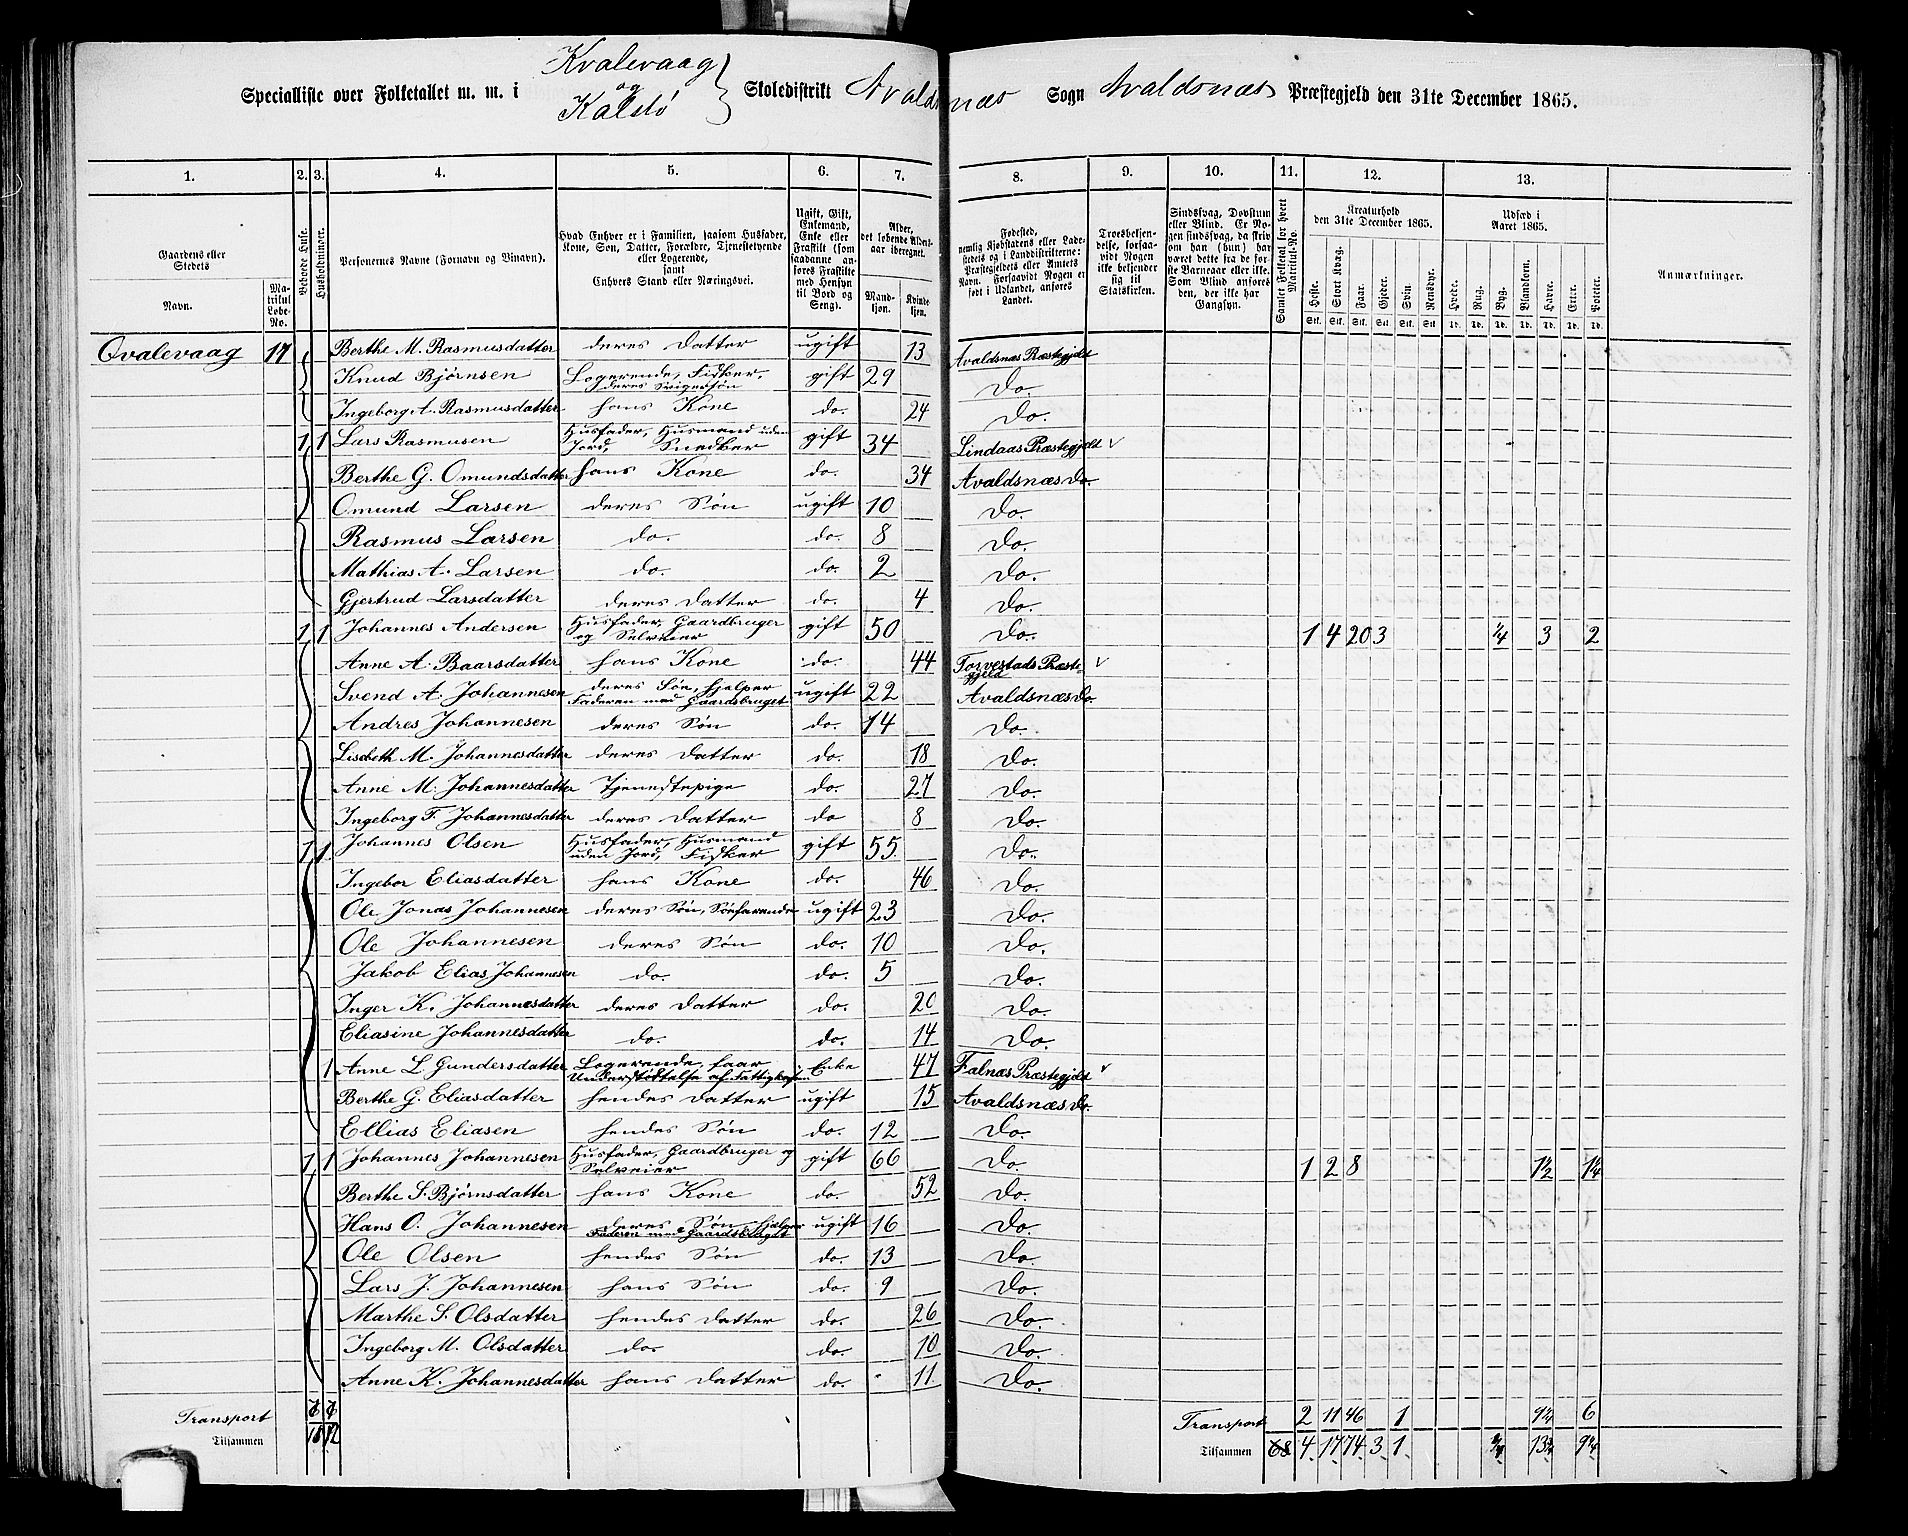 Specialliste over Folketallet m. m. i Kvalevaag og Kalstø Skoledistrikt Avaldsnæs Sogn Avaldsnæs Præstegjeld den 31te December 1865.
1. 2. 3. 4. 5. 6. 7. 8. 9. 10. 11. 12. 13.
Gaardens eller Stedets Navn. Matrikul Løbe-No. Beboede Huse. Husholdninger. Personernes Navne (Fornavn og Tilnavn). Hvad Enhver er i Familien, saasom Husfader, Kone, Søn, Datter, Forældre, Tjenestetyende eller Logerende, samt Enhvers Stand eller Næringsvei. Ugift, Gift, Enkemand, Enke eller Fraskilt (som saadanne anføres Fraskilte med Hensyn til Bord og Seng). Alder, det løbende Aldersaar iberegnet. Mandkjøn. Kvindekjøn. Fødested, nemlig Kjøbstadens eller Ladestedets og i Landdistrikterne: Præstegjeldets eller Amtets Navn. Forsaavidt Nogen er født i Udlandet, anføres Landet. Troesbekjendelse, forsaavidt Nogen ikke bekjender sig til Statskirken. Sindssvag, Døvstum eller Blind. Er Nogen sindssvag, da skrives om han (hun) har været dette fra de første Barneaar eller ikke. Som Blind anføres den, der ikke har Gangsyn. Samlet Folketal for hvert Matrikul-No. Kreaturhold den 31te December 1865. Heste. Stort Kvæg. Faar. Gjeder. Svin. Rensdyr. Udsæd i Aaret 1865. Hvede. Rug. Byg. Blandkorn. Havre. Erter. Poteter. Anmærkninger.
Stk. Stk. Stk. Stk. Stk. Stk. Td. Td. Td. Td. Td. Td. Td.
Qvalevaag 17 Berthe M. Rasmusdatter deres Datter ugift 13 Avaldsnæs Præstegjeldt
Knud Bjørnsen Logerende, Fisker, deres Svigersøn gift 29 Do.
Ingeborg A. Rasmusdatter hans Kone do. 24 Do.
1 1 Lars Rasmusen Husfader, Husmand uden Jord, Snedker gift 34 Lindaas Præstegjeldt
Berthe G. Omundsdatter hans Kone do. 34 Avaldsnæs Do.
Omund Larsen deres Søn ugift 10 Do.
Rasmus Larsen do. do. 8 Do.
Mathias A. Larsen do. do. 2 Do.
Gjertrud Larsdatter deres Datter do. 4 Do.
1 1 Johannes Andersen Husfader, Gaardbruger og Selveier gift 50 Do. 1 4 20 3 1/4 3 2
Anne A. Baarsdatter hans Kone do. 44 Torvestads Præstegjeld
Svend A. Johannesen deres Søn, hjelper Faderen med Gaardsbruget ugift 22 Avaldsnæs Do.
Andres Johannesen deres Søn do. 14 Do.
Lisebeth M. Johannesdatter deres Datter do. 18 Do.
Anne M. Johannesdatter Tjenestepige do. 27 Do.
Ingeborg F. Johannesdatter deres Datter do 8 Do.
1 1 Johannes Olsen Husfader, Husmand uden Jord, Fisker gift 55 Do.
Ingebor Eliasdatter hans Kone do. 46 Do.
Ole Jonas Johannesen deres Søn, Søefarende ugift 23 Do.
Ole Johannesen deres Søn do. 10 Do.
Jakob Elias Johannesen do. do. 5 Do.
Inger K. Johannesdatter deres Datter do. 20 Do.
Eliasine Johannesdatter do. do. 14 Do.
1 Anne L. Gundersdatter Logerende, faar Understøttelse af Fattigkassen Enke 47 Falnæs Præstegjeldt
Berthe G. Eliasdatter hendes Datter ugift 15 Avaldsnæs Do.
Ellias Eliasen hendes Søn do. 12 Do.
1 1 Johannes Johannesen Husfader, Gaardbruger og Selveier gift 66 Do. 1 2 8 1 1/2 1 1/4
Berthe S. Bjørnsdatter hans Kone do. 52 Do.
Hans O. Johannesen deres Søn hjælper Faderen med Gaardsbruget ugift 16 Do.
Ole Olsen hendes Søn do. 13 Do.
Lars J. Johannesen hans Søn do. 9 Do.
Marthe S. Olsdatter hendes Datter do. 26 Do.
Ingeborg M. Olsdatter do. do. 10 Do.
Anne K. Johannesdatter hans Datter do. 11 Do.
Transport Transport 2 11 46 1 9 1/4 6
Tilsammen 12 Tilsammen 68 4 17 74 3 1 1/4 13 3/4 9 1/4